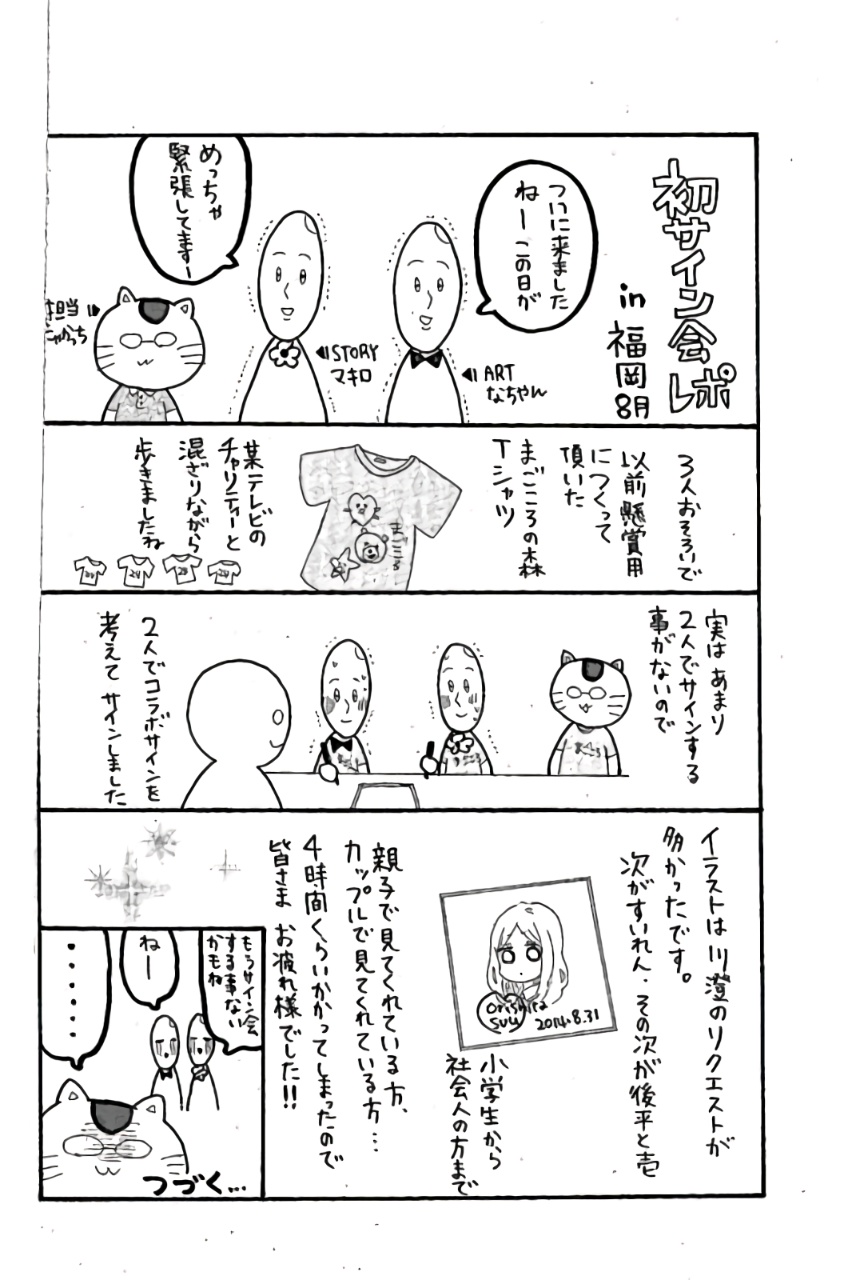 初サイン会レポ
in 福岡
8月
ついに来ました
ねー この日が
めっちゃ
緊張してますー
ART
なちやん
STORY
マキロ
担当
にゃかっち
3人おそろいで
以前懸賞用
につくって
頂いた
まごころの森
Tシャツ
まごころ
某テレビの
チャリティーと
混ざりながら
歩きましたね
24
28
24
実は あまり
2人でサインする
事がないので
2人でコラボサインを
考えて サインしました
イラストは川澄のリクエストが
多かったです。
次がすいれん・その次が後平と壱
Orishima
suu
2014.8.31
小学生から
社会人の方まで
親子で見てくれている方、
カップルで見てくれている方…
4時間くらいかかってしまったので
皆さま お疲れ様でした!!
もうサイン会
する事ない
かもね
ねー
・・・・・・
つづく…